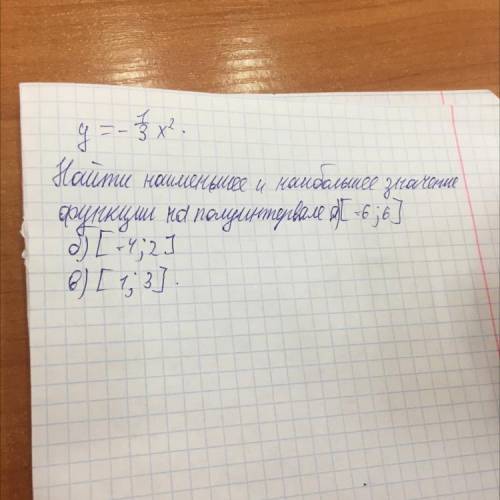 y = -1/3 x².
Найти наименьшее и наибольшее значение
функции на полуинтервале а) [-6; 6]
б) [-4; 2]
в) [1; 3].